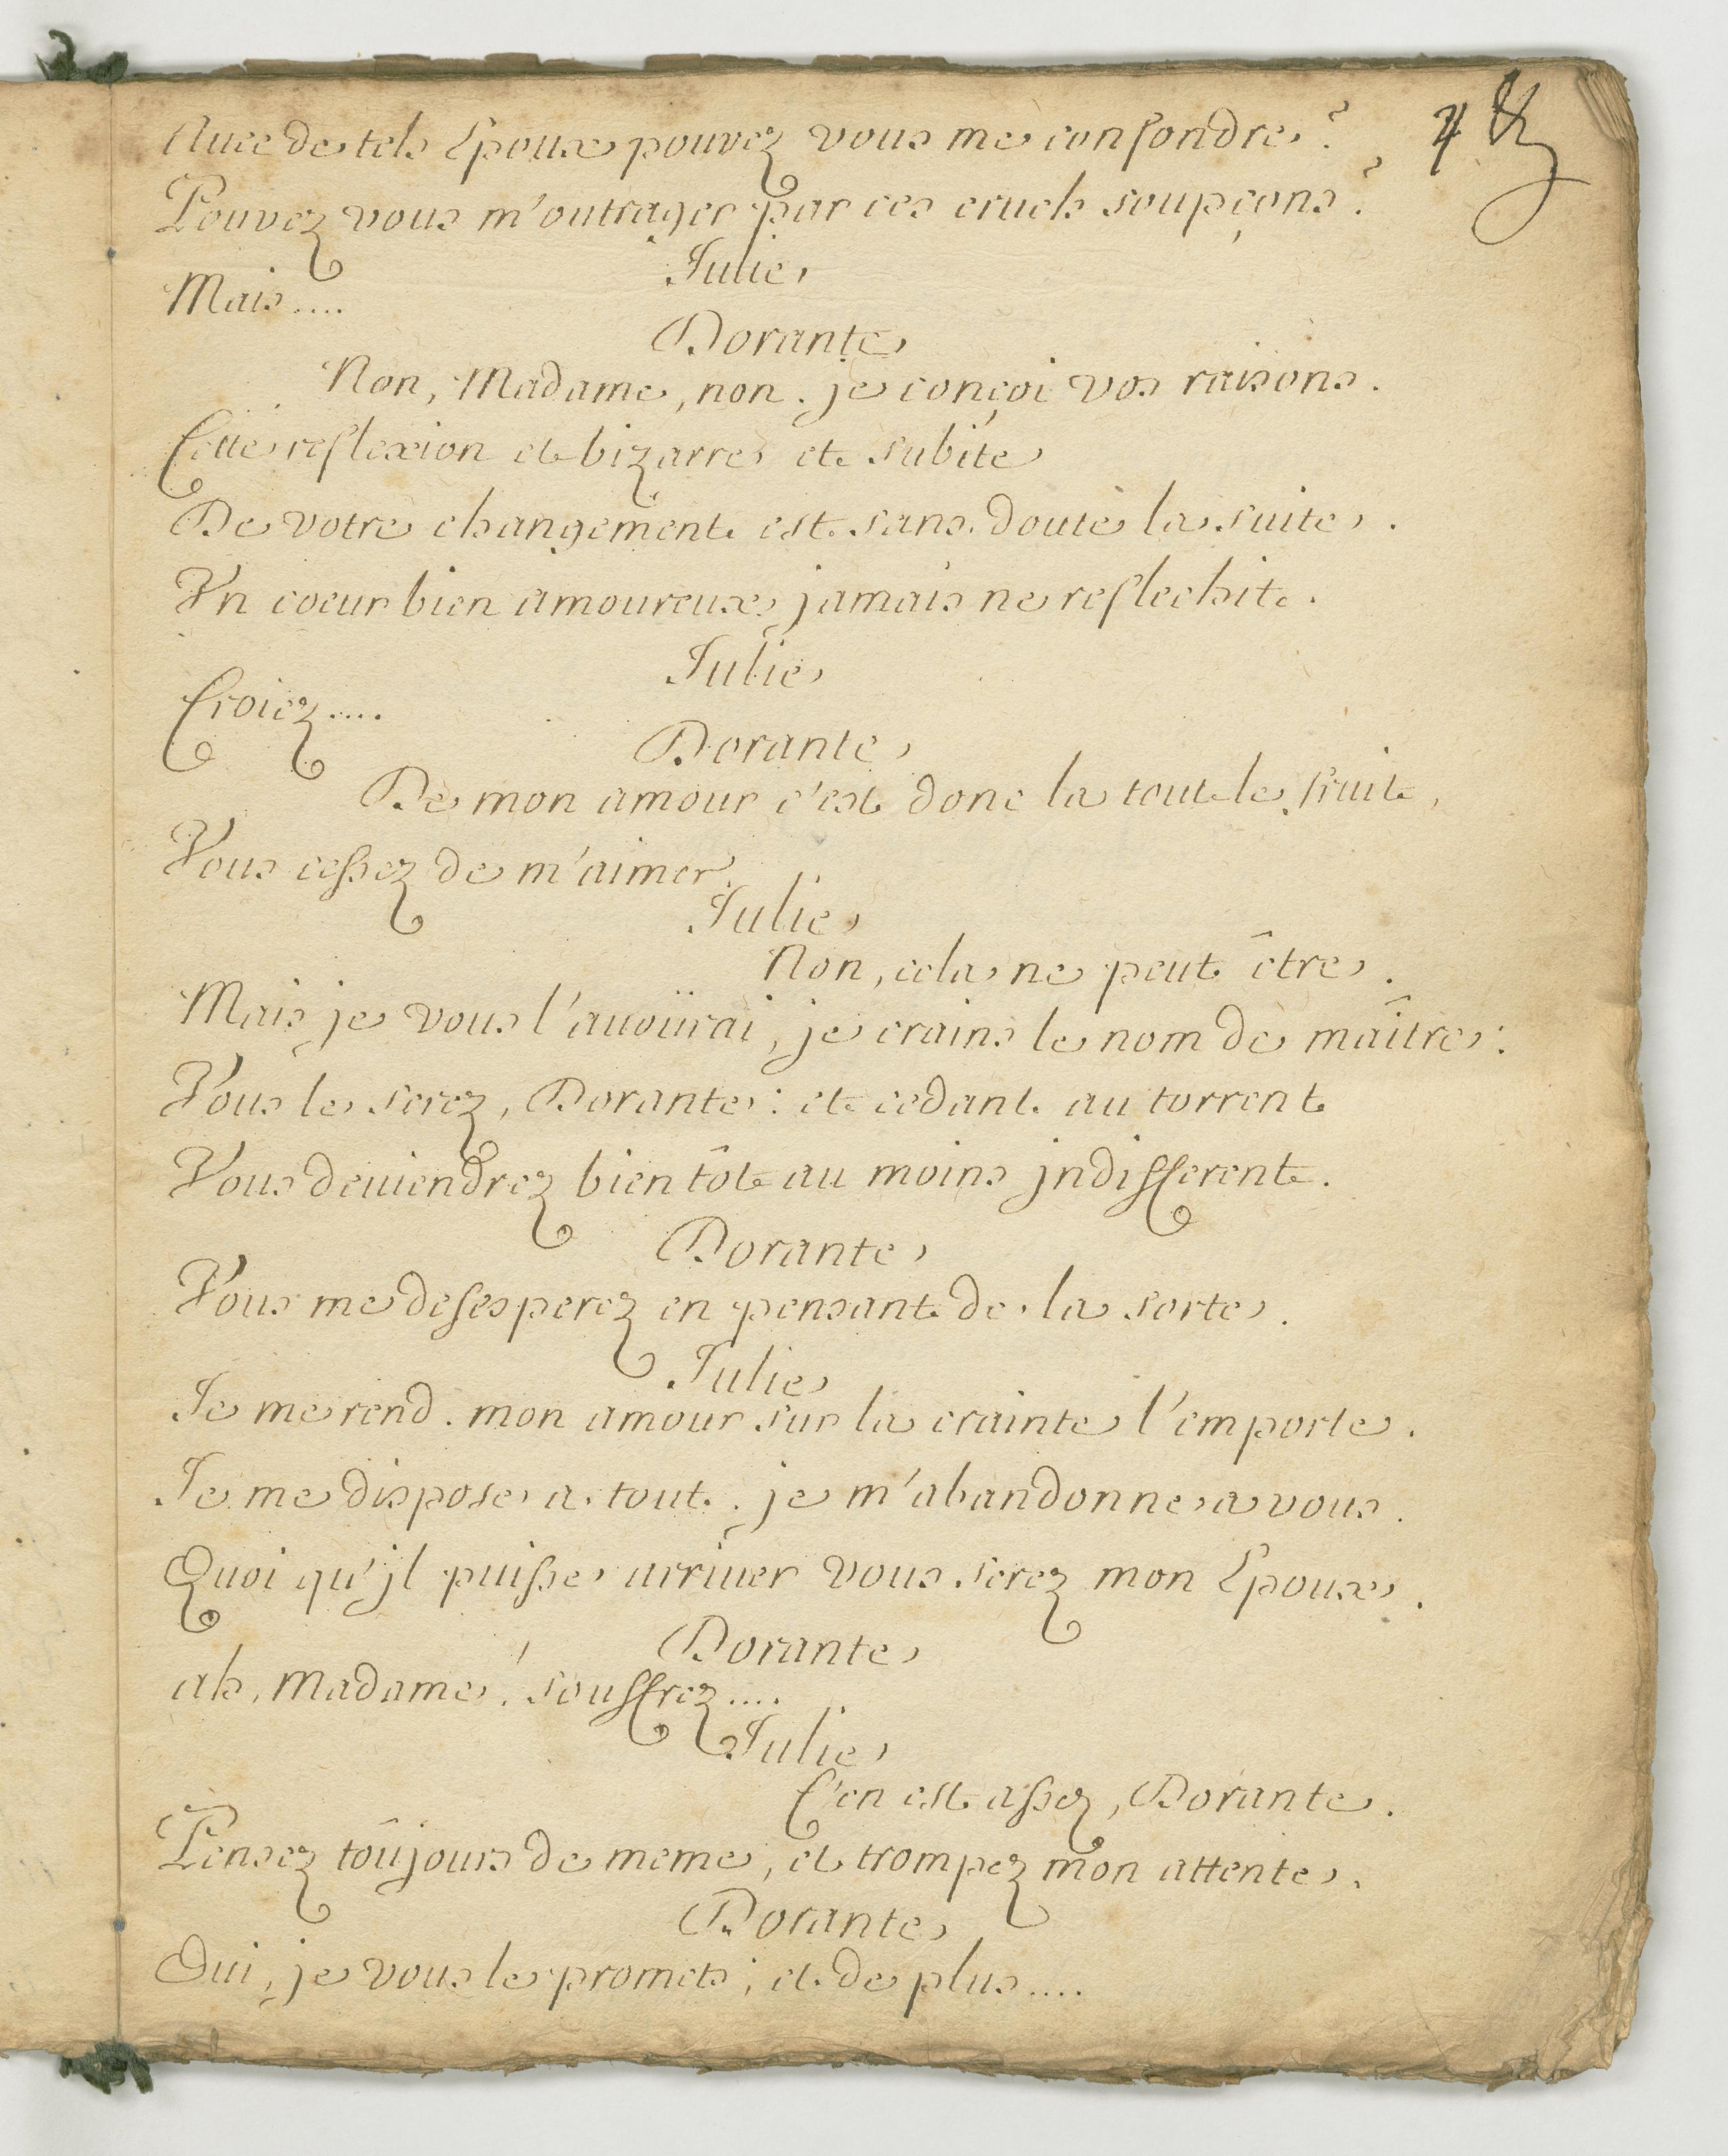 Auec de tels Epoux pouvez vous me confondre?
4
Pouvez vous m'outrager par ces cruels soupçons?
Julie
Mais....
Dorante
Non, Madame, non. je conçoi vos raisons.
Cette reflexion et bizarre et subite
De votre changement est sans doute la suite.
Vn coeur bien amoureux jamais ne reflechit.
Julie
Croiez....
Dorante
De mon amour c'est donc la tout le fruit,
Vous cessez de m'aimer.
Julie
Non, cela ne peut être.
Mais je vous l'auoüirai, je crains le nom de maître:
Vous le serez, Dorante: et cedant au torrent
Vous deuiendrez bien tôt au moins jndifferent.
Dorante
Vous me desesperez en pensant de la sorte.
Julie
Je me rend. mon amour sur la crainte l'emporte.
Je me dispose a tout. je m'abandonne a vous.
Quoi qu'jl puisse arriuer vous serez mon Epoux.
Dorante
ah, Madame! souffrez....
Julie
C'en est assez, Dorante.
Pensez toûjours de meme, et trompez mon attente.
Dorante
Oui, je vous le promets; et de plus....